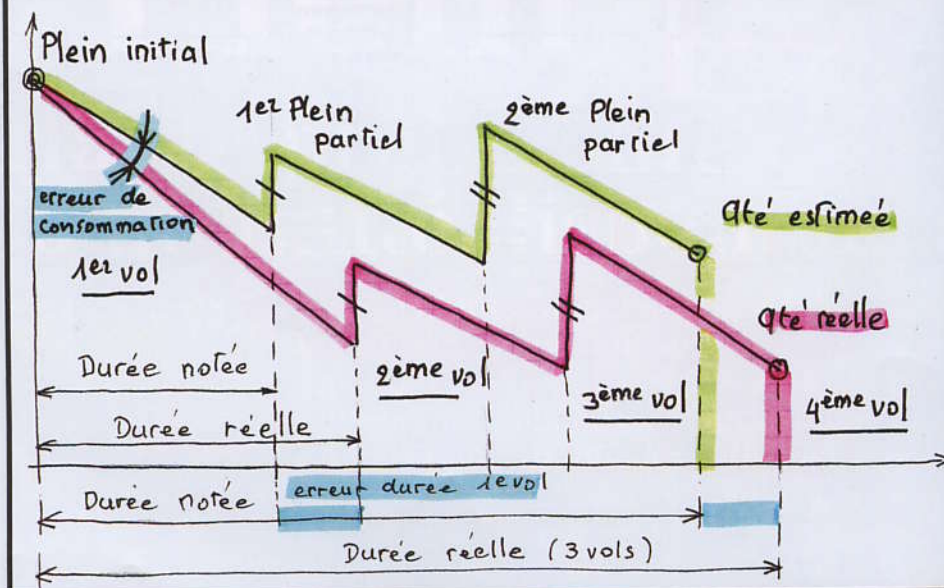 Plein initial
1er Plein
partiel
2ème Plein
partiel
erreur de
consommation
1er vol
Qté estimeé
Qté réelle
Durée notée
2ème vol
3ème vol
4ème vol
Durée réelle
erreur durée 1e vol
Durée notée
Durée réelle (3 vols)